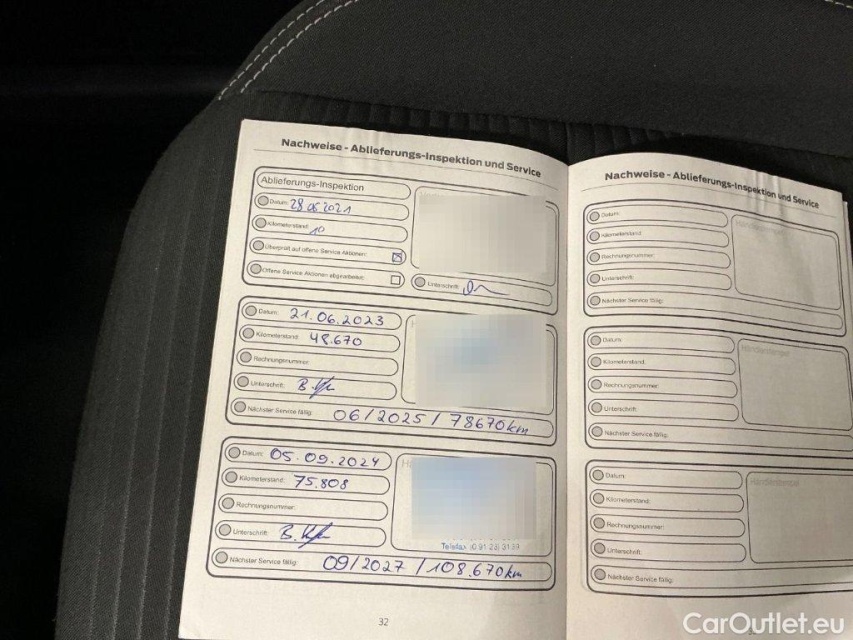 Nachweise - Ablieferungs-Inspektion und Service
Ablieferungs-Inspektion
Datum: 28.06.2021
Kilometerstand: 10
Überprüft auf offene Service Aktionen:
Offene Service Aktionen abgearbeitet:
Unterschrift:
Datum: 21.06.2023
Kilometerstand: 48.670
Rechnungsnummer:
Unterschrift:
Nächster Service fällig: 06/2025 / 78670km
Datum: 05.09.2024
Kilometerstand: 75.808
Rechnungsnummer:
Unterschrift:
Telefax (0 91 23)
Nächster Service fällig: 09/2027 / 108.670km
32
Nachweise - Ablieferungs-Inspektion und Service
Datum:
Kilometerstand:
Rechnungsnummer:
Unterschrift:
Nächster Service fällig:
Datum:
Händlerstempel
Kilometerstand:
Rechnungsnummer:
Unterschrift:
Nächster Service fällig:
Datum:
Händlerstempel
Kilometerstand:
Rechnungsnummer:
Unterschrift:
Nächster Service fällig:
CarOutlet.eu